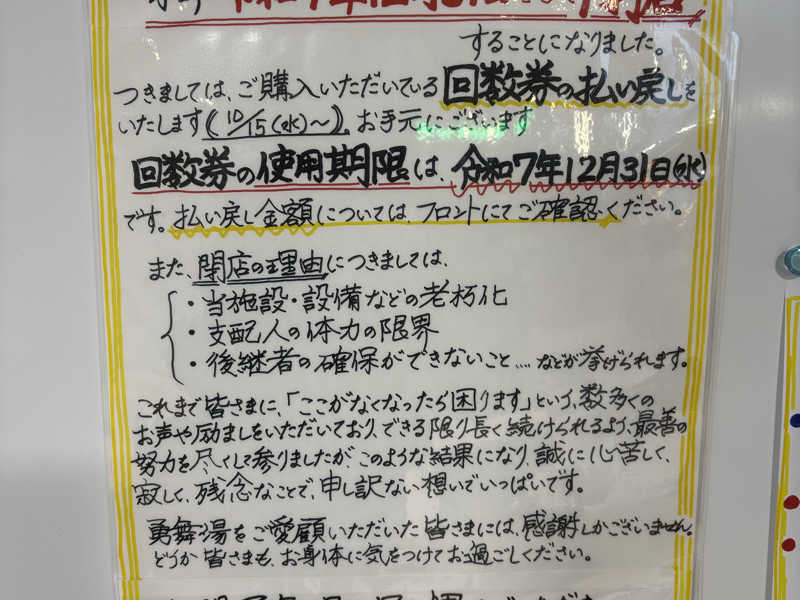 することになりました。
つきましては、ご購入いただいている回数券の払い戻しを
いたします(10/15(水)～)。お手元にございます
回数券の使用期限は、令和7年12月31日(水)
です。払い戻し金額については、フロントにてご確認ください。
また、閉店の理由につきましては、
・当施設・設備などの老朽化
・支配人の体力の限界
・後継者の確保ができないこと....などが挙げられます。
これまで皆さまに、「ここがなくなったら困ります」という、数多くの
お声や励ましをいただいており、できる限り長く続けられるよう、最善の
努力を尽くして参りましたが、このような結果になり、誠に心苦しく、
寂しく、残念なことで、申し訳ない想いでいっぱいです。
勇舞湯をご愛顧いただいた皆さまには、感謝しかございません。
どうか皆さまも、お身体に気をつけてお過ごしください。